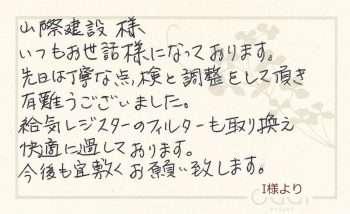 山際建設 様
いつもお世話様になっております。
先日は丁寧な点検と調整をして頂き
有難うございました。
給気レジスターのフィルターも取り換え
快適に過しております。
今後も宜敷くお願い致します。
I様より